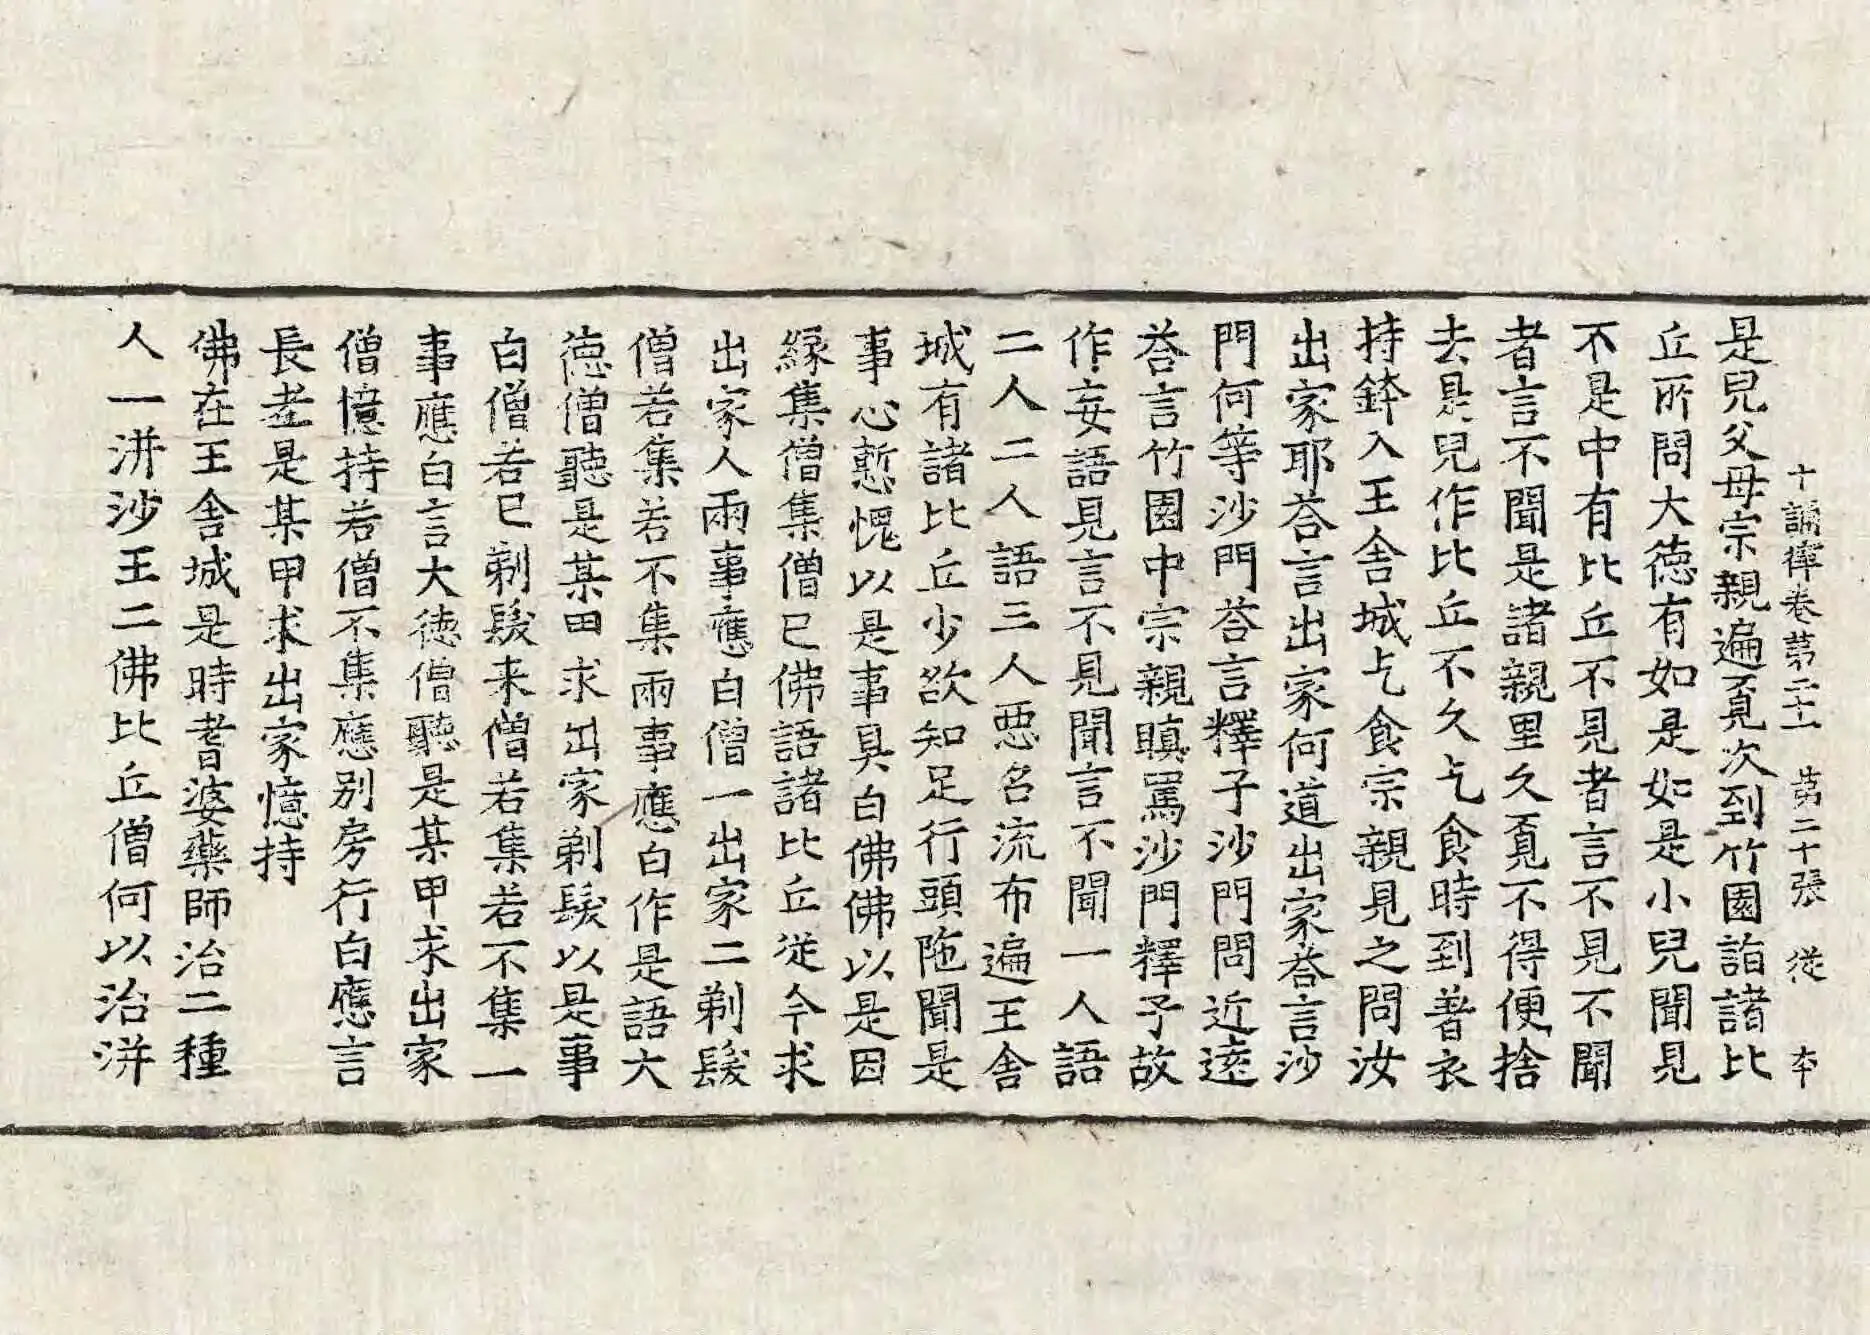 十誦律卷第二十一　第二十張　從　夲
是兒父母宗親遍覔次到竹園詣諸比
丘所問大徳有如是如是小兒聞見
不是中有比丘不見者言不見不聞
者言不聞是諸親里久覔不得便捨
去是兒作比丘不久乞食時到著衣
持鉢入王舍城乞食宗親見之問汝
出家耶荅言出家何道出家荅言沙
門何等沙門荅言釋子沙門問近遠
荅言竹園中宗親瞋罵沙門釋子故
作妄語見言不見聞言不聞一人語
二人二人語三人惡名流布遍王舍
城有諸比丘少欲知足行頭陁聞是
事心慙愧以是事具白佛佛以是因
緣集僧集僧已佛語諸比丘從今求
出家人兩事應白僧一出家二剃髮
僧若集若不集兩事應白作是語大
徳僧聽是某甲求出家剃髮以是事
白僧若已剃髮来僧若集若不集一
事應白言大徳僧聽是某甲求出家
僧憶持若僧不集應別房行白應言
長老是某甲求出家憶持
佛在王舍城是時耆婆藥師治二種
人一洴沙王二佛比丘僧何以治洴